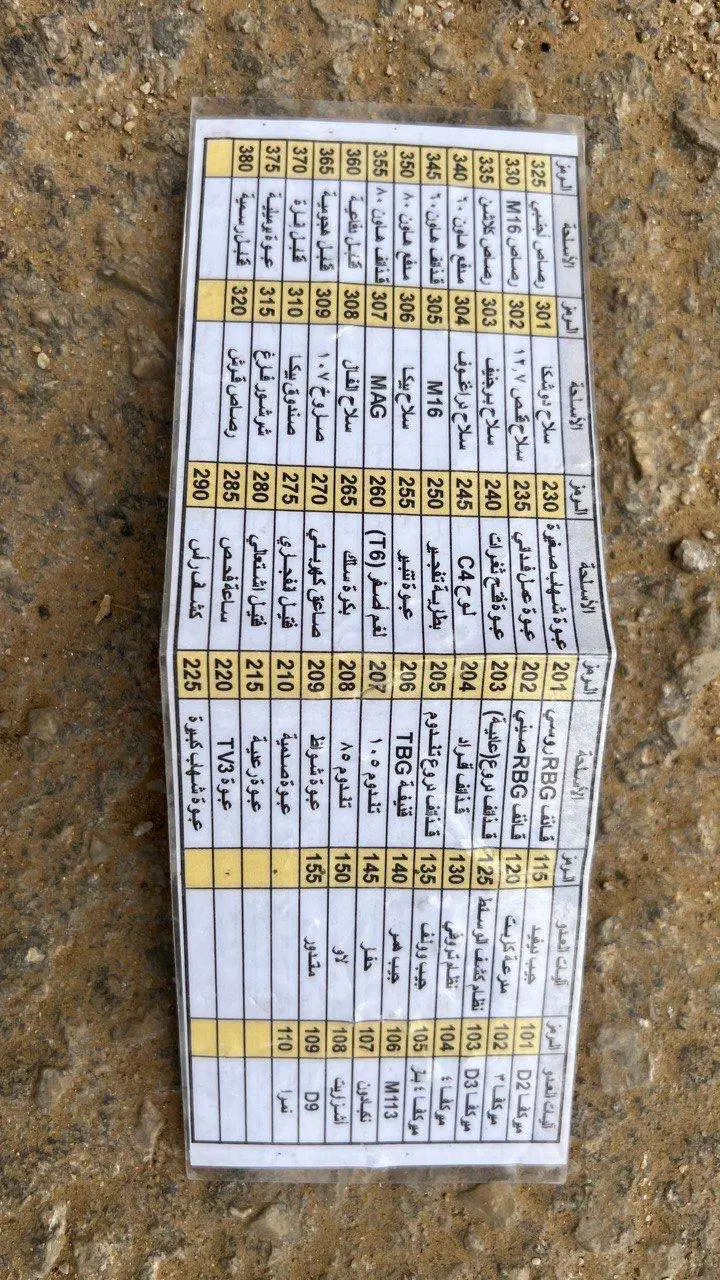 آليات العدو الرمز آليات العدو الرمز الأسلحة الرمز الأسلحة الرمز الأسلحة الرمز الأسلحة الرمز
ميركفا D2 101 جيب ديفيد 115 قاذف RBG روسي 201 عبوة شهاب صغيرة 230 سلاح دوشكا 301 رصاص أجنبي 325
ميركفا ٣ 102 مدرعة كاربت 120 قاذف RBG صيني 202 عبوة عمل فدائي 235 سلاح قنص ١٢,٧ 302 رصاص M16 330
ميركفا D3 103 نظام كشف الوسط 125 قذائف دروع(عالية) 203 عبوة فتح ثغرات 240 سلاح برجنيف 303 رصاص كلاشن 335
ميركفا ٤ 104 نظام تروفي 130 قذائف أفراد 204 لوح C4 245 سلاح دراغنوف 304 مدفع هاون ٦٠ 340
ميركفا ٤ 105 جيب وولف 135 قذائف دروع تندوم 205 بطارية تفجير 250 M16 305 قذائف هاون ٦٠ 345
M113 106 جيب همر 140 قذيفة TBG 206 عبوة 255 سلاح بيكا 306 مدفع هاون ٨٠ 350
نكبادون 107 حفار 145 تندوم ١٠٥ 207 لغم أصفر (T6) 260 MAG 307 قذائف هاون ٨٠ 355
أشزريت 108 لاو 150 تندوم ٨٥ 208 بكرة سلك 265 سلاح الفال 308 قنابل دفاعية 360
D9 109 155 عبوة شواظ 209 صاعق كهربائي 270 صاروخ ١٠٧ 309 قنابل هجومية 365
110 عبوة صدمية 210 فتيل تفجاري 275 صندوق بيكا 310 قنابل 370
عبوة رعدية 215 فتيل اشتعالي 280 شرشور فارغ 315 عبوة برميلية 375
عبوة TV3 220 ساعة فحص 285 رصاص قرش 320 قنابل رسمية 380
عبوة شهاب كبيرة 225 كشاف رأس 290